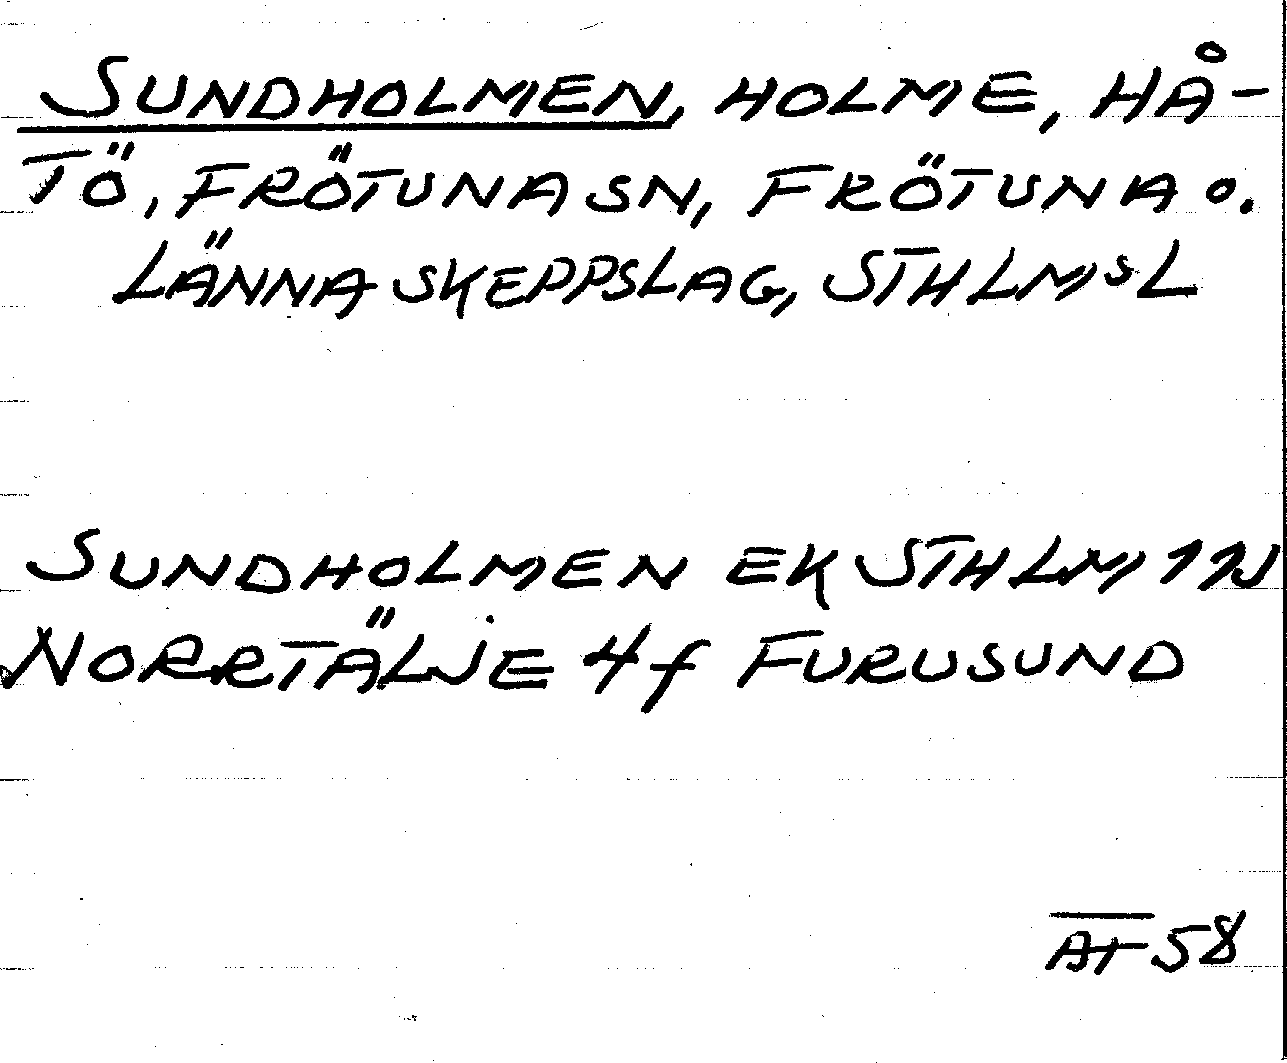 SUNDHOLMEN, HOLME, HÅ-
TÖ, FRÖTUNA SN, FRÖTUNA o.
LÄNNA SKEPPSLAG, STHLMsL
SUNDHOLMEN EK STHLM 11NJ
NORRTÄLJE 4f FURUSUND
58